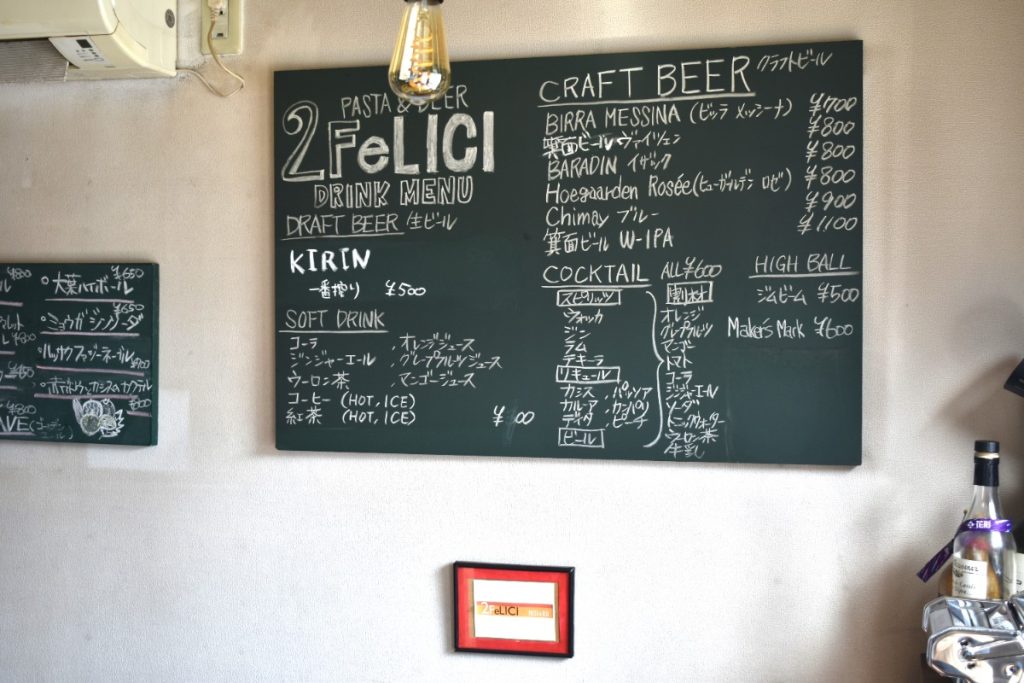 PASTA & BEER
2 FeLICI
DRINK MENU
DRAFT BEER 生ビール
KIRIN
一番搾り ¥500
SOFT DRINK
コーラ ・オレンジジュース
ジンジャーエール ・グレープフルーツジュース
ウーロン茶 ・マンゴージュース
コーヒー (HOT, ICE)
紅茶 (HOT, ICE)
CRAFT BEER クラフトビール
BIRRA MESSINA (ビッラ メッシーナ) ¥700
箕面ビール ヴァイツェン ¥800
BARADIN イザック ¥800
Hoegaarden Rosée (ヒューガルデン ロゼ) ¥800
Chimay ブルー ¥900
箕面ビール W-IPA ¥1100
COCKTAIL ALL ¥600
スピリッツ
ウォッカ
ジン
ラム
テキーラ
リキュール
カシス ・パッソア
カルーア ・カンパリ
ディタ ・ピーチ
ビール
割材
オレンジ
グレープフルーツ
マンゴー
トマト
コーラ
ジンジャーエール
ソーダ
トニックウォーター
ウーロン茶
牛乳
HIGH BALL
ジムビーム ¥500
Maker's Mark ¥600
大葉ハイボール ¥650
ミョウガジンソーダ ¥650
2FeLICi